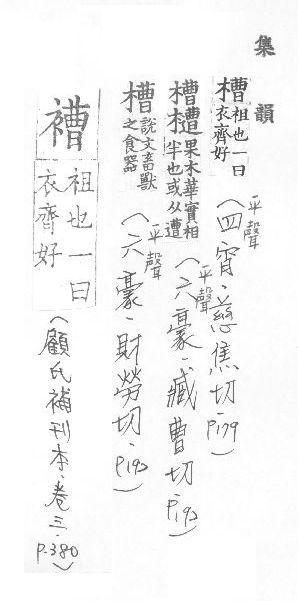 集韻
槽 祖也一曰衣齊好 (平聲 四宵·慈焦切·P179)
槽𣞙 果木華實相半也或从遭 (平聲 六豪·臧曹切·P192)
槽 說文畜獸之食器 (平聲 六豪·財勞切·P192)
褿 祖也一曰衣齊好 (顧氏補刊本·卷三·P.380)